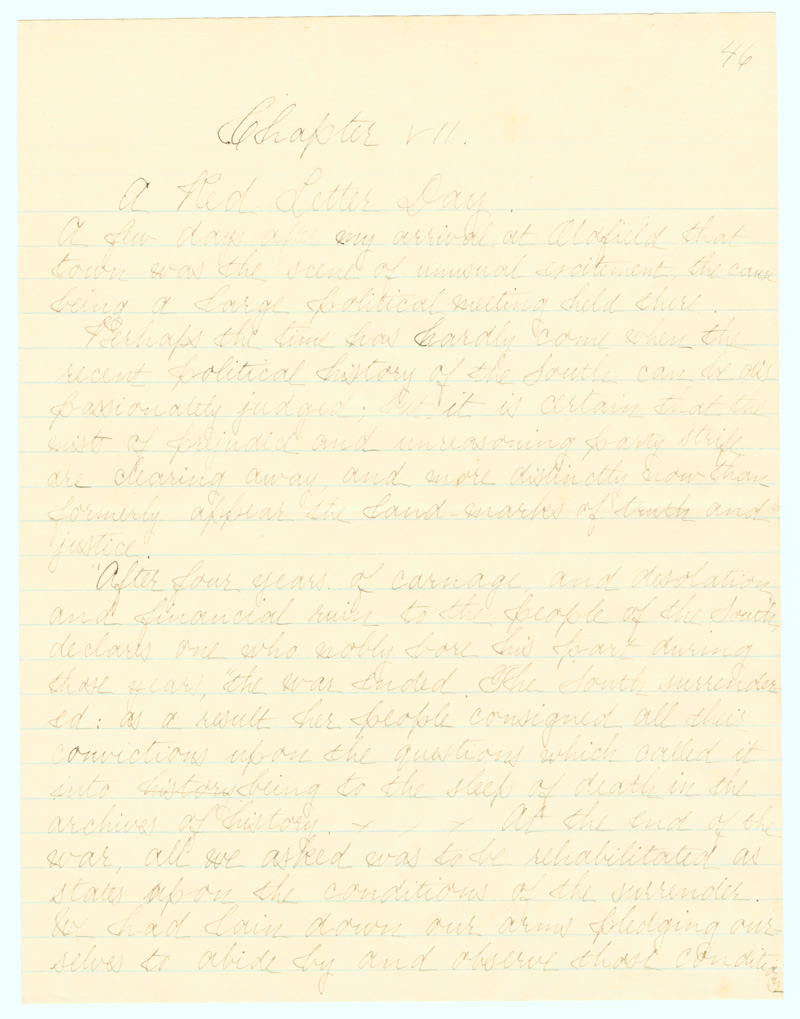 46
Chapter VII.
A Red Letter Day.
A few days after my arrival at Oldfield that
town was the scene of unusual excitement, the cause
being a large political meeting held there.
Perhaps the time has hardly come when the
recent political history of the South can be dis
passionately judged; but it is certain that the
mist of prejudice and unreasoning party strife
are clearing away, and more distinctly now than
formerly appear the land-marks of truth and
justice.
"After four years of carnage and desolation
and financial ruin to the people of the South,"
declares one who nobly bore his part during
those years, "the war ended. The South surrender
ed: as a result her people consigned all their
convictions upon the questions which called it
into history being to the sleep of death in the
archives of history. x x x At the end of the
war, all we asked was to be rehabilitated as
states upon the conditions of the surrender.
We had lain down our arms pledging our-
selves to abide by and observe those conditions